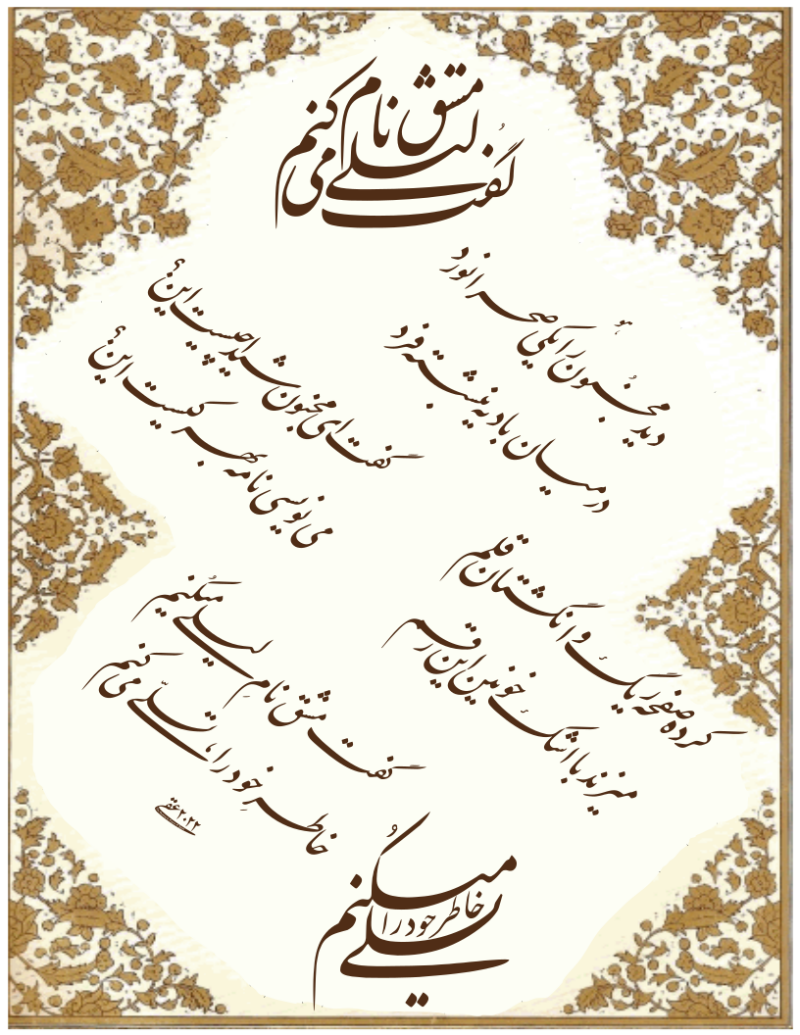 گفت مشق نام لیلی می کنم
دید مجنون را یکی صحرا نورد
در میان بادیه بنشسته فرد
گفت ای مجنون شیدا چیست این؟
می نویسی نامه بهر کیست این؟
کرده صفحه ریگ و انگشتان قلم
میزند با اشک خونین این رقم
گفت مشق نام لیلی میکنم
خاطر خود را، تسلّی می کنم
۲۰۲۲
خاطر خود را تسلی میکنم